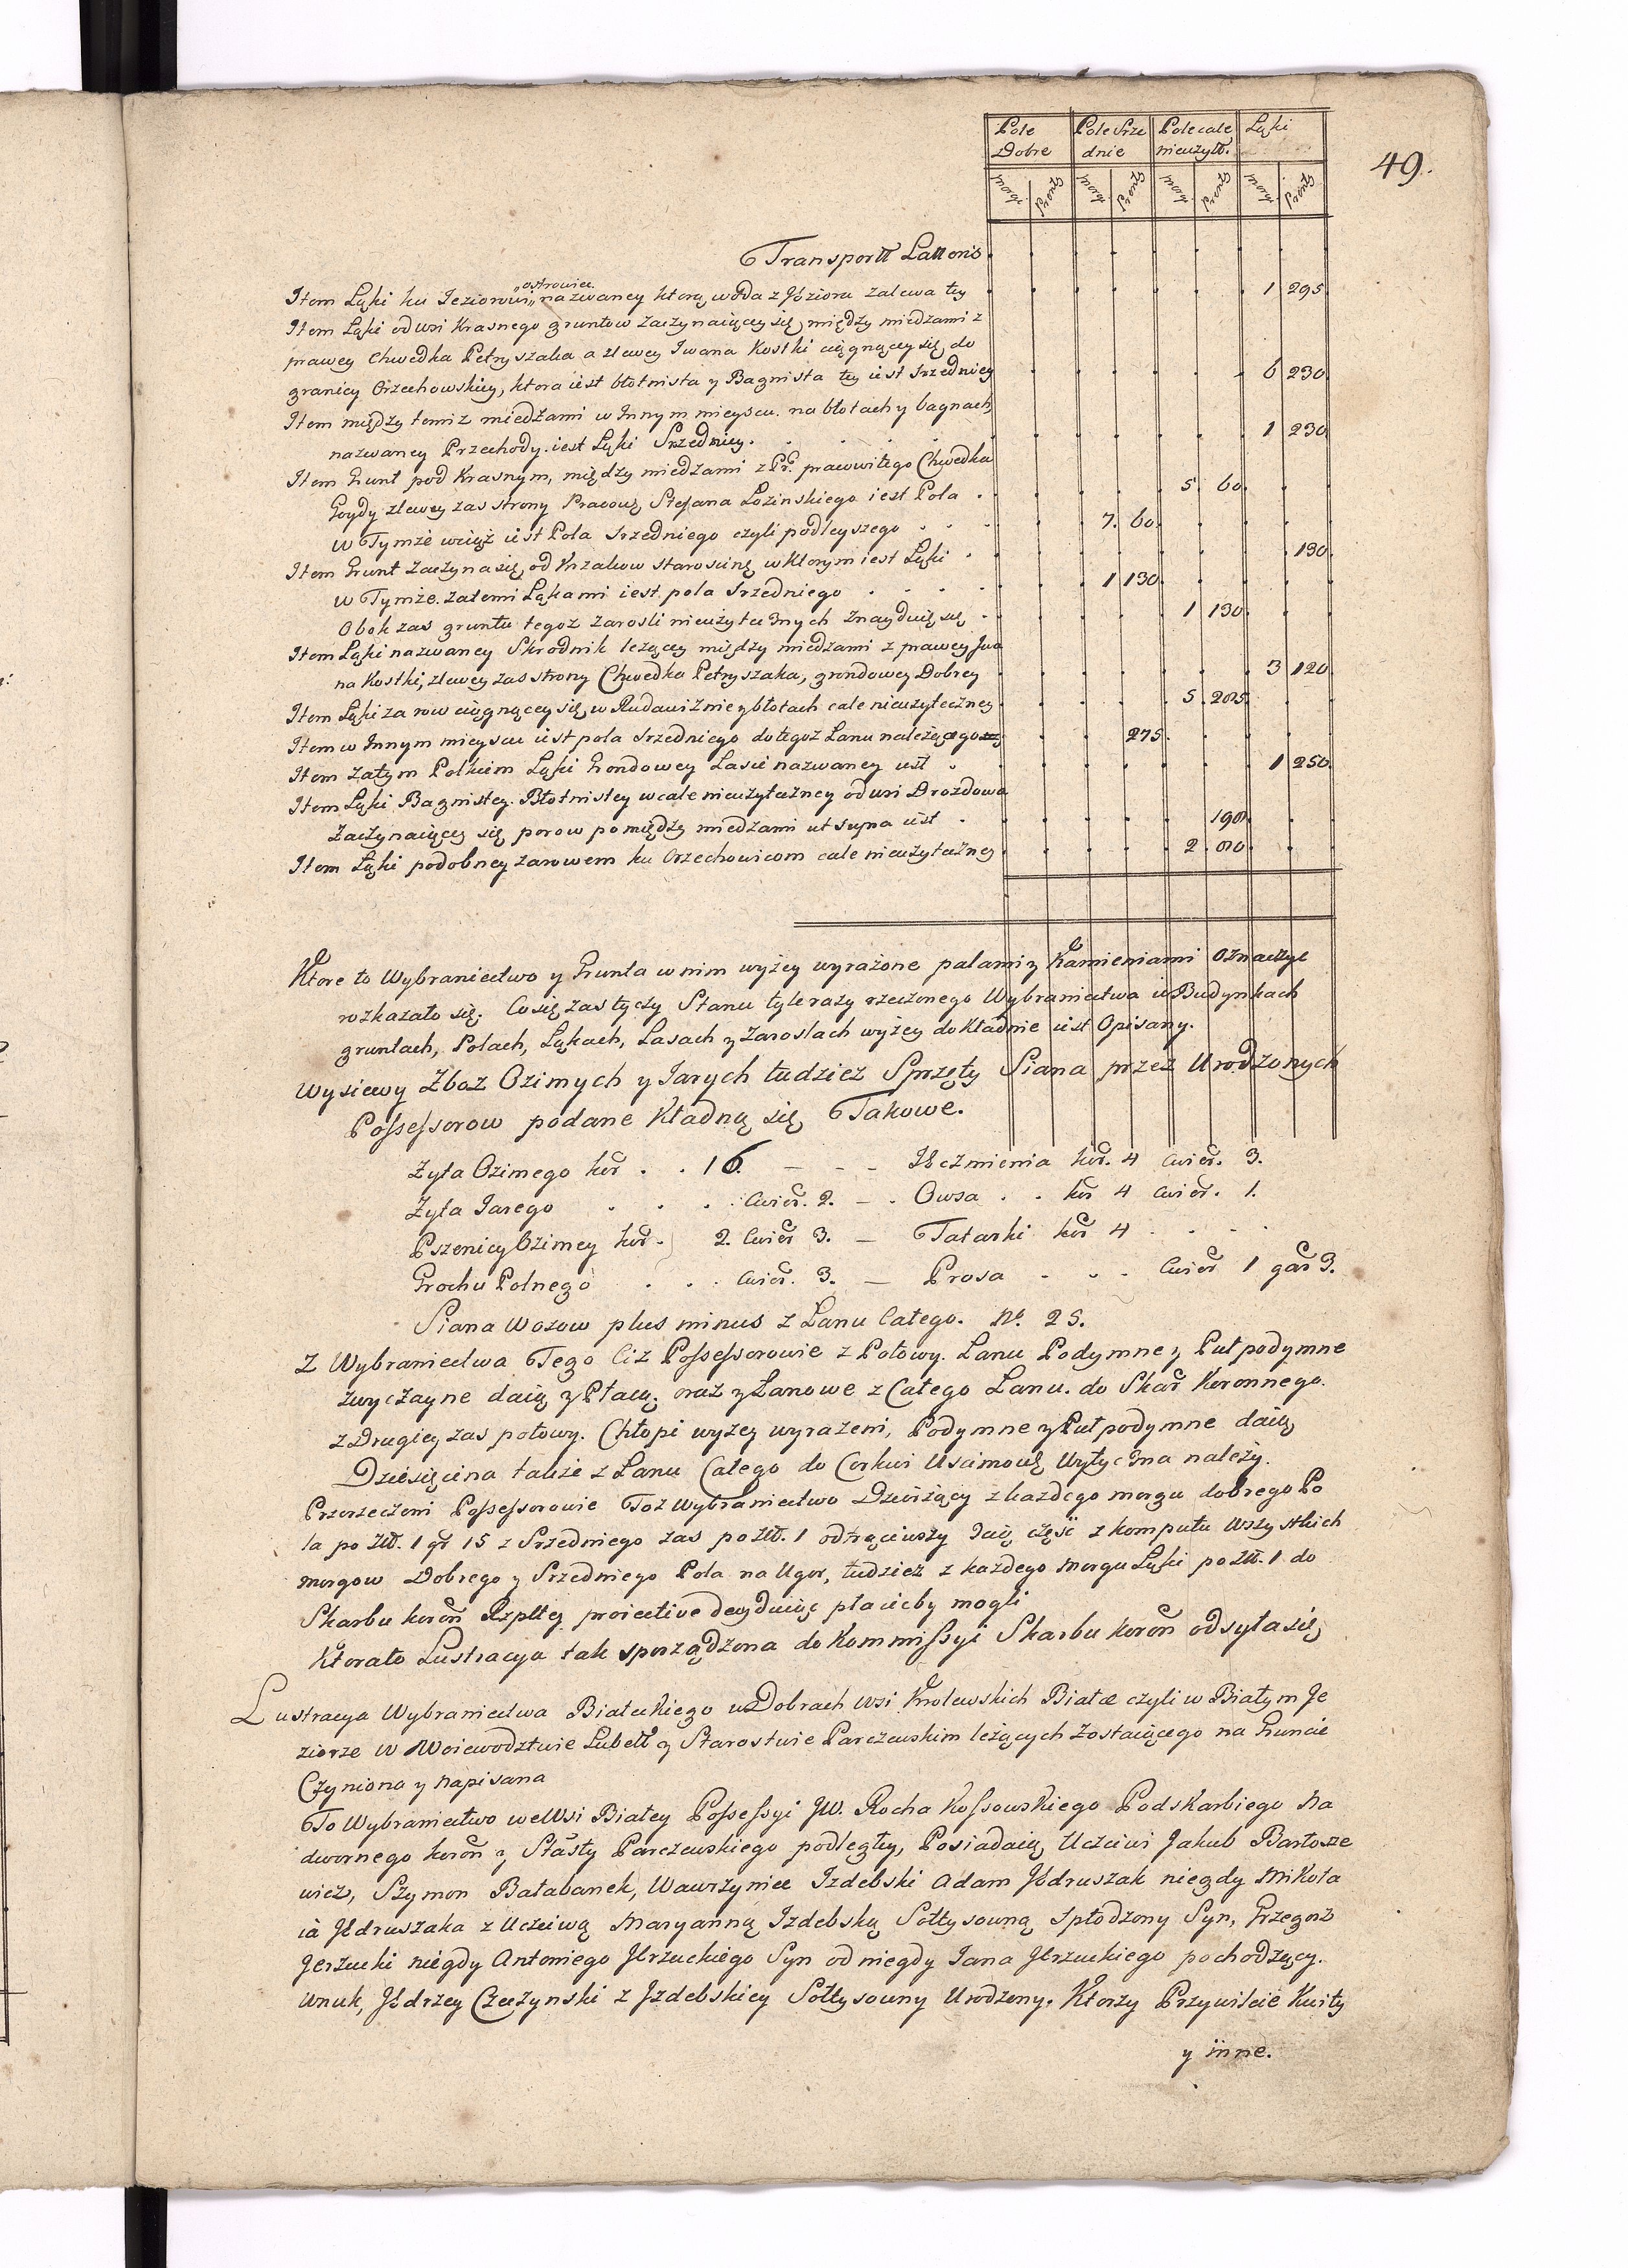 49.
Pole Dobre | Pole Srzednie | Pole cale nieużytt. | Łąki
morgi | Pręty | morgi | Pręty | morgi | Pręty | morgi | Pręty
Transportt Latteris
Item Łąki ku Jeziorowi „ostrowiec„ nazwaney którą woda z Jeziora zalewa tey 1 295
Item Łąki od wsi Krasnego gruntow zaczynaiącey się, między miedzami z
prawey Chwedka Petryszaka a z lewey Iwana Kostki ciągnącey się do
granicy Orzechowskiey, ktora iest błotnista y Bagnista tey iest Srzedniey 6 230
Item między temiż miedzami w Innym mieyscu. na błotach y bagnach,
nazwaney Przechody. iest Łąki Srzedniey. 1 230
Item Grunt pod Krasnym, między miedzami z Pr. prawowitego Chwedka
Goydy z lewey zas strony Stefana Łozinskiego iest Pola 5 60
w Tymże wciąż iest Pola Srzedniego czyli podleyszego 7. 60
Item Grunt zaczyna się od Krzakow starosciną w Ktorym iest Łąki 130
w Tymże. za temi Łąkami iest pola Srzedniego 1 130
Obok zas gruntu tegoż zarosli nieużytecznych znayduię się 1 130
Item Łąki nazwaney Skrodnik leżącey między miedzami z prawey Jwa
na Kostki, z lewey zas strony Chwedka Petryszaka, grondowey Dobrey 3 120
Item Łąki za row ciągnącey się, w Rudawiźnie y błotach cale nieużyteczney 5 205
Item w Innym mieyscu iest pola Srzedniego do tegoż Łanu należącego 275
Item za tym Polkiem Łąki Grondowey Lasie nazwaney iest 1 250
Item Łąki Bagnistey. Błotnistey w cale nieużyteczney od wsi Drozdowa
zaczynaiącey się po row pomiędzy miedzami ut supra iest 190
Item Łąki podobney za rowem ku Orzechowicom cale nieużyteczney 2 80
Ktore to Wybraniectwo y Grunta w nim wyżey wyrażone palami y Kamieniami oznaczyc
rozkazało się. Co się zas tyczy Stanu tyle razy rzeczonego Wybraniectwa w Budynkach
gruntach, Polach, Łąkach, Lasach y Zaroslach wyżey dokładnie iest Opisany.
Wysiewy Zboż Ozimych y Jarych tudzież Sprzęty Siana przez Urodzonych
Possessorow podane Kładną się Takowe.
Żyta Ozimego kor . . 16. – – – Jęczmienia kor. 4 cwier. 3.
Żyta Jarego . . . . cwier. 2. – . Owsa . . kor 4 cwier. 1.
Pszenicy Ozimey kor. 2. cwier 3. – Tatarki kor 4 . . .
Grochu Polnego . . . cwier. 3. – Prosa . . . cwier 1 gar 3.
Siana wozow plus minus z Łanu Całego. No. 25.
Z Wybraniectwa Tego Ciż Possessorowie z Połowy. Łanu Podymne y Pułpodymne
zwyczayne daią y Płacą. oraz y Łanowe z Całego Łanu. do Skar Koronnego.
z Drugiey zas połowy. Chłopi wyżey wyrażeni, Podymne y Pułpodymne daią
Dziesięcina także z Łanu Całego do Cerkwi Uscimowę Wytyczna należy.
Przerzeczeni Possessorowie Toż Wybraniectwo Dzierżący z każdego morgu dobrego Po
la po Złt. 1 gr 15 z Srzedniego zas po Złt. 1 odtrąciwszy 3cią część z komputu Wszystkich
morgow Dobrego y Srzedniego Pola na Ugor, tudzież z każdego morgu Łąki po Złt. 1 do
Skarbu koron Rzpltey proiective decyduiąc płacicby mogli
Ktorato Lustracya tak sporządzona do Kommissyi Skarbu koron odsyła się,
Lustracya Wybraniectwa Białeckiego w Dobrach Wsi Krolewskich Białce czyli w Białym Je
ziorze w Woiewodztwie Lubell y Starostwie Parczewskim leżących zostaiącego na Gruncie
Czyniona y Napisana
To Wybraniectwo we Wsi Białey Possessyi JW. Rocha Kossowskiego Podskarbiego Na
dwornego koron y Stasty Parczewskiego podległey, Posiadaią, Uczciwi Jakub Bartosze
wicz, Szymon Bałabanek, Wawrzyniec Izdebski Adam Jędruszak niegdy Mikoła
ia Jędruszaka z Uczciwą Maryanną Izdebską Sołtysowną Spłodzony Syn, Grzegorz
Jerzucki niegdy Antoniego Jerzuckiego Syn od niegdy Jana Jerzuckiego pochodzący.
Wnuk, Jędrzey Czeczynski z Jzdebskiey Sołtysowny Urodzony. Ktorzy Przywileie Kwity
y inne.